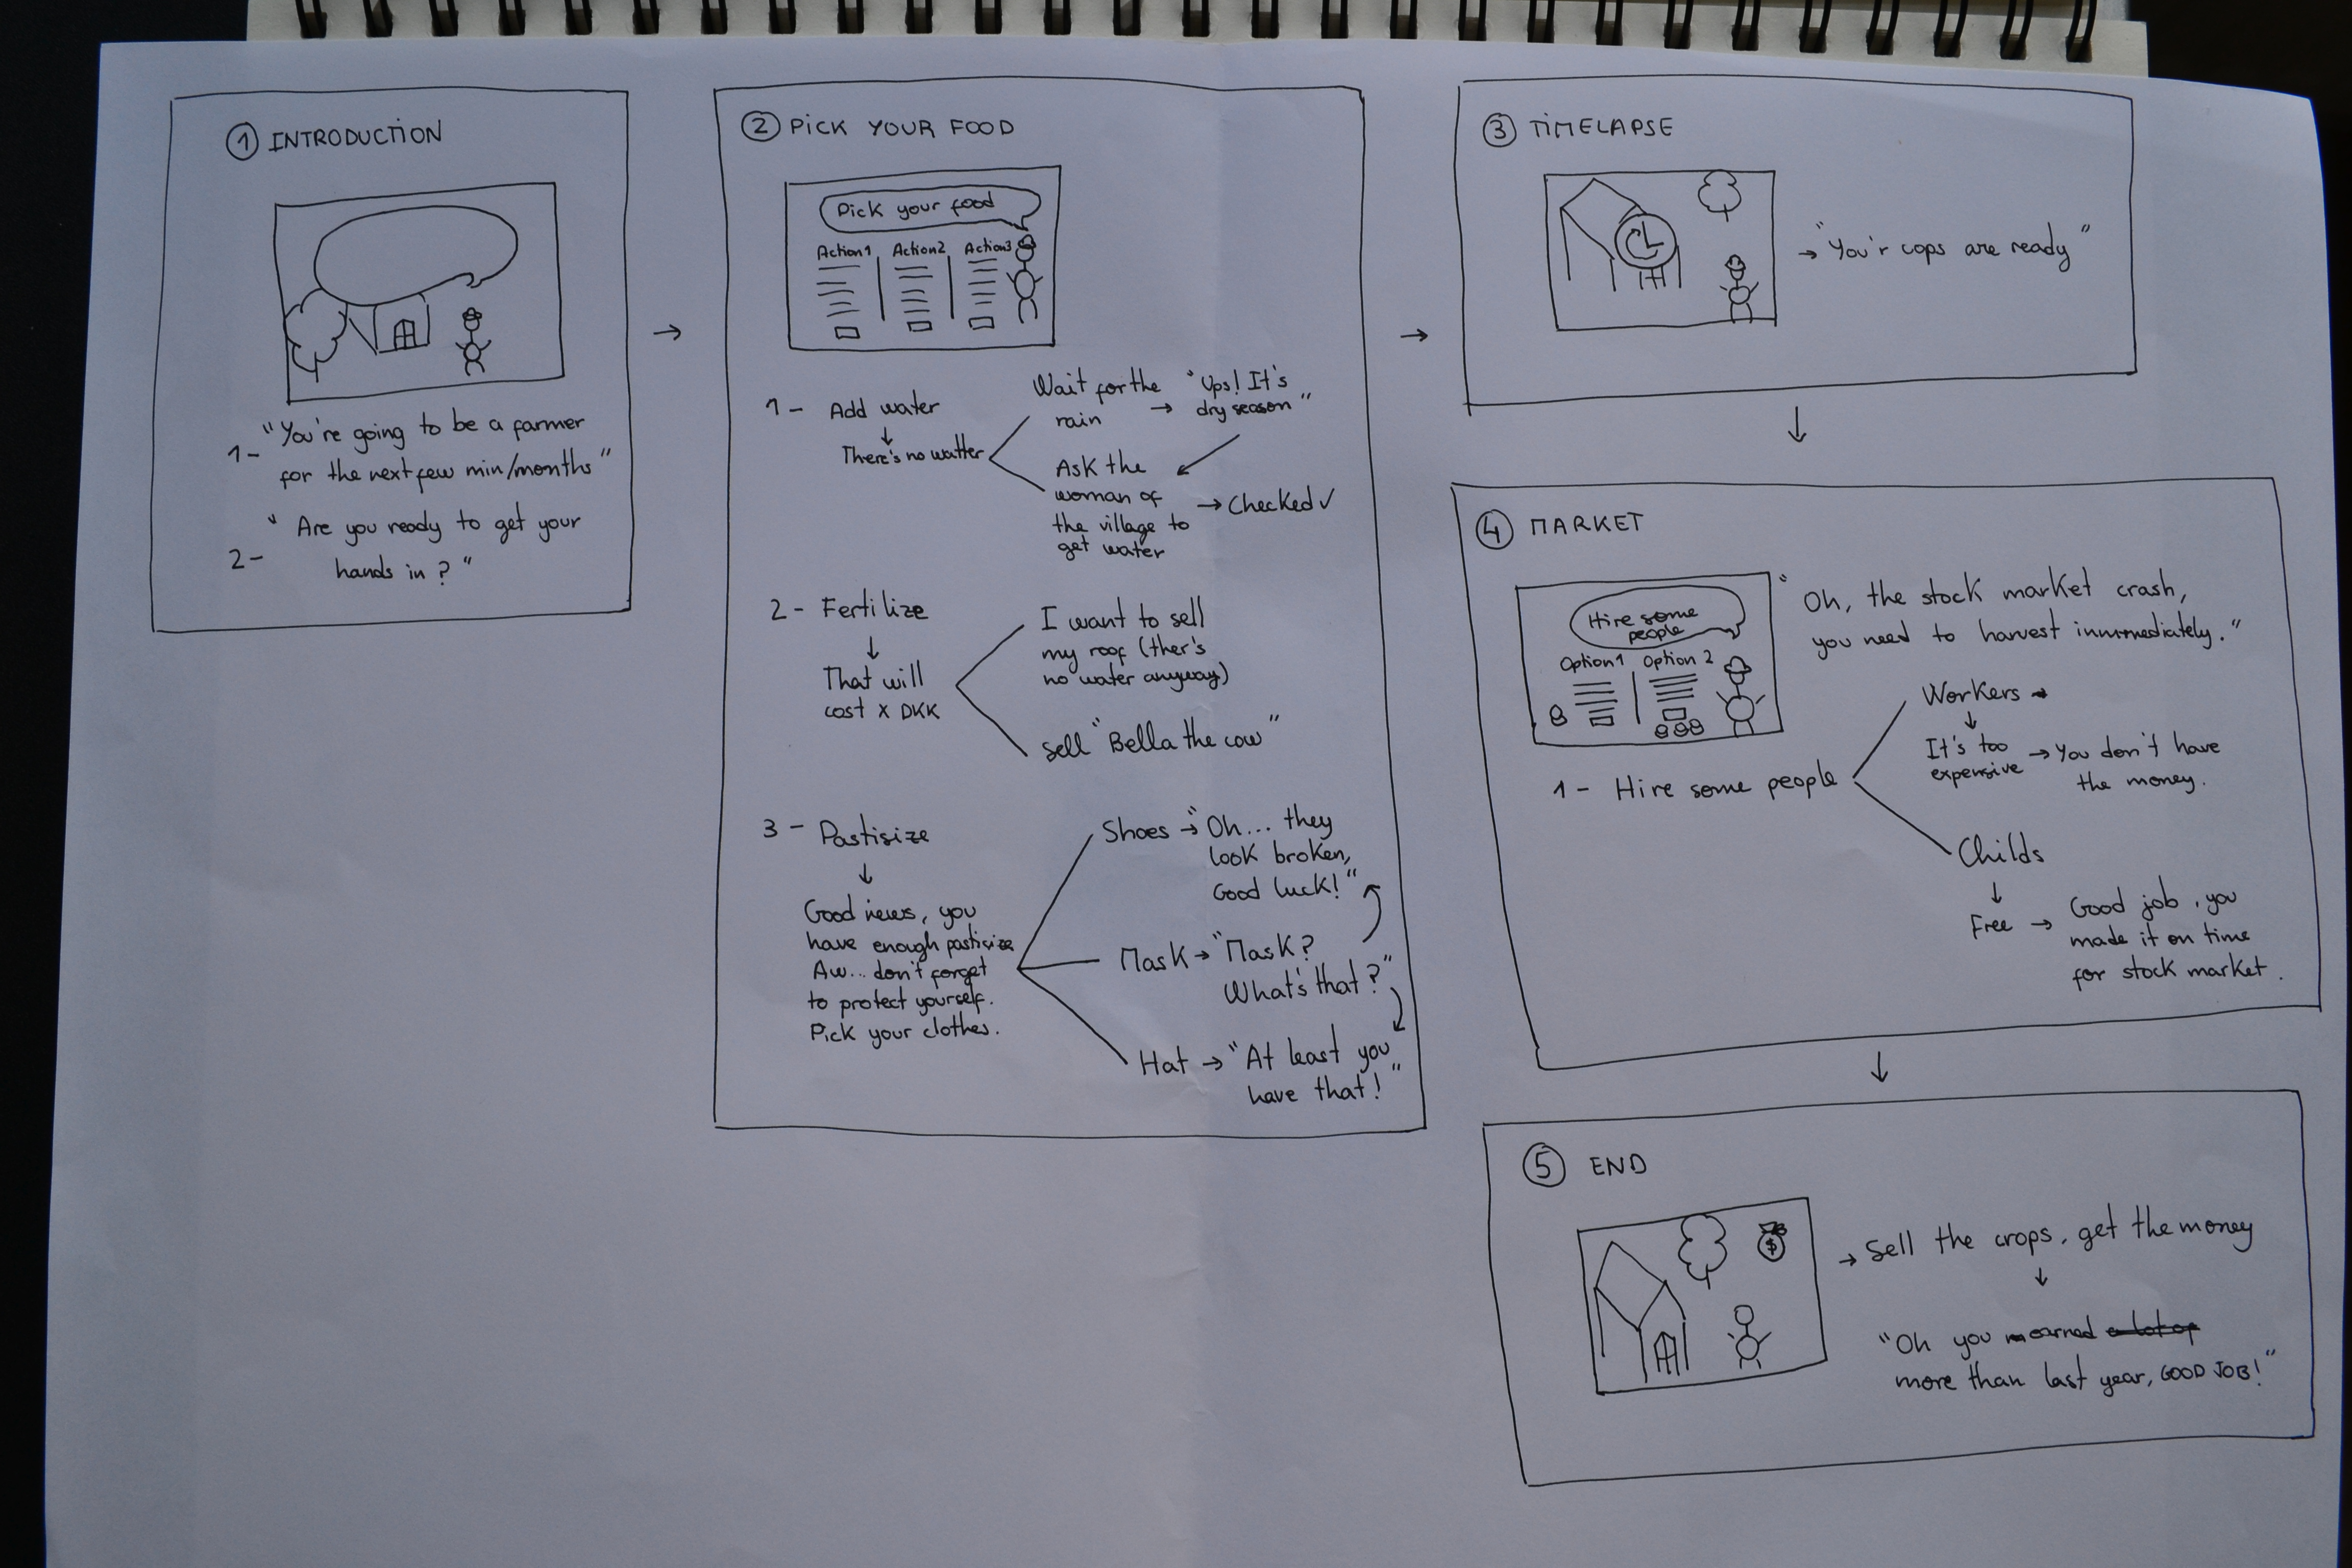 1 INTRODUCTION
1- "You're going to be a farmer
for the next few min/months"
2- "Are you ready to get your
hands in?"
→
2 PICK YOUR FOOD
Pick your food
Action1 Action2 Action3
1- Add water
↓
There's no watter
Wait for the
rain → "Ups! It's
dry season"
Ask the
woman of
the village to
get water
→ Checked ✓
2- Fertilize
↓
That will
cost x DKK
I want to sell
my roof (ther's
no water anyway)
sell "Bella the cow"
3- Pastisize
↓
Good news, you
have enough pastisize
Aw... don't forget
to protect yourself.
Pick your clothes.
Shoes → "Oh... they
look broken,
Good luck!"
Mask → "Mask?
What's that?"
Hat → "At least you
have that!"
→
3 TIMELAPSE
→ "You'r cops are ready"
↓
4 MARKET
Hire some
people
Option1 Option 2
"Oh, the stock market crash,
you need to harvest inmmediately."
1- Hire some people
Workers →
↓
It's too
expensive → You don't have
the money.
Childs
↓
Free → Good job, you
made it on time
for stock market.
↓
5 END
$
→ Sell the crops, get the money
↓
"Oh you earned a lot of
more than last year, GOOD JOB!"